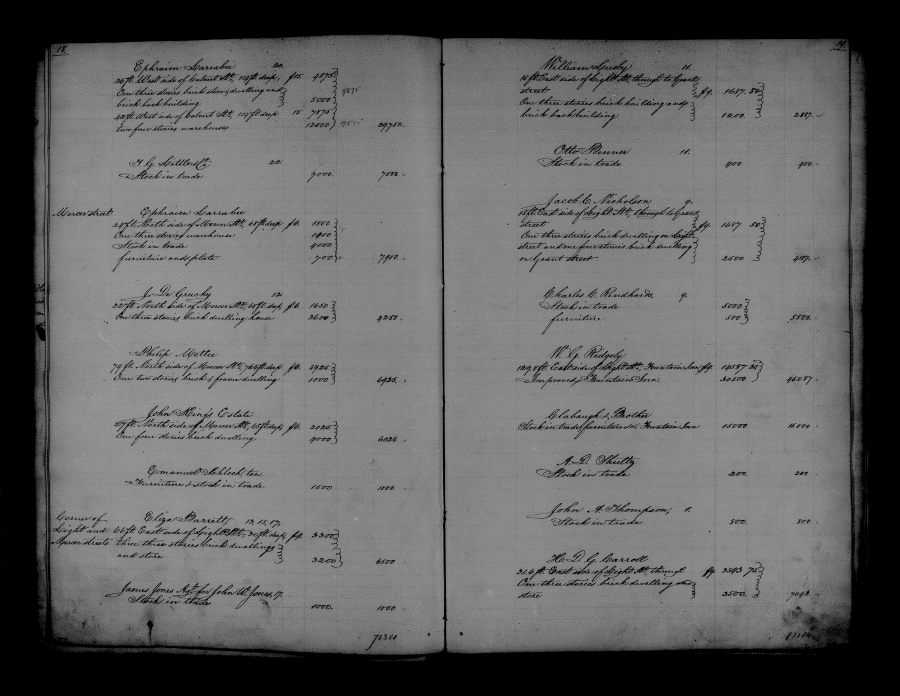 18.
Ephraim Larrabee 20.
25 ft. West side of Calvert St., 125 ft deep, $15. 4875
One three stories brick store, dwelling and
brick back building 5000
42 ft. West side of Calvert St., 125 ft deep 15 7875
two four stories warehouses 12000 29750.
T. G. Little & Co. 20
Stock in trade 7000 7000
Mercer street Ephraim Larrabee
North side of Mercer St., 65 ft. deep 1800
One three stories warehouse
Stock in trade 4000
furniture and plate 700 7900.
J. De Gruchy 12.
North side of Mercer St. 65 ft. deep, 1650
One three stories brick dwelling house 2600 4250.
Philip Mottee
79 ft. North side of Mercer St., deep 5925
One two stories brick & frame dwelling 1000 6925.
John King's Estate
North side of Mercer St., 65 ft. deep 2025
One four stories brick dwelling 4000 6025
Emanuel Schlock, ten
Furniture & stock in trade 1000 1000.
Corner of Light and Mercer streets
Eliza Barrett, 13. 15. 17.
66 ft. East side of Light St., 30 ft. deep, 3300
three three stories brick dwellings
and store 3200 6500
James Jones Agt. for John W. Jones, 17.
Stock in trade 1000. 1000.
70300
19.
William Lusby 11.
15 ft. East side of Light St. through to Grant
street $9. 1687.50
One three stories brick building and
brick back building 1200. 2887.
Otto Benner 11.
Stock in trade 900 900.
Jacob C. Nicholson 9.
15 ft. East side of Light St., through to Grant
street $9. 1687 50
One three stories brick dwelling on Light
street and one four stories brick dwelling
on Grant street 2500 4187.
Charles C. Reinhardt, 9.
Stock in trade 5000
furniture 500 5500.
W. G. Ridgely
129.8 ft. East side of Light St., Fountain Inn $9. 14587 50
Improved, Fountain Inn. 30500 45087.
Clabaugh & Brother
Stock in trade furniture &c. Fountain Inn 15000 15000.
A. D. Shutty
Stock in trade 200. 200
John A. Thompson, 1.
Stock in trade 800. 800
H. D. G. Carroll
31.6 ft. East side of Light St. through $9 3543 75
One three stories brick dwelling and
store 3500. 7043.